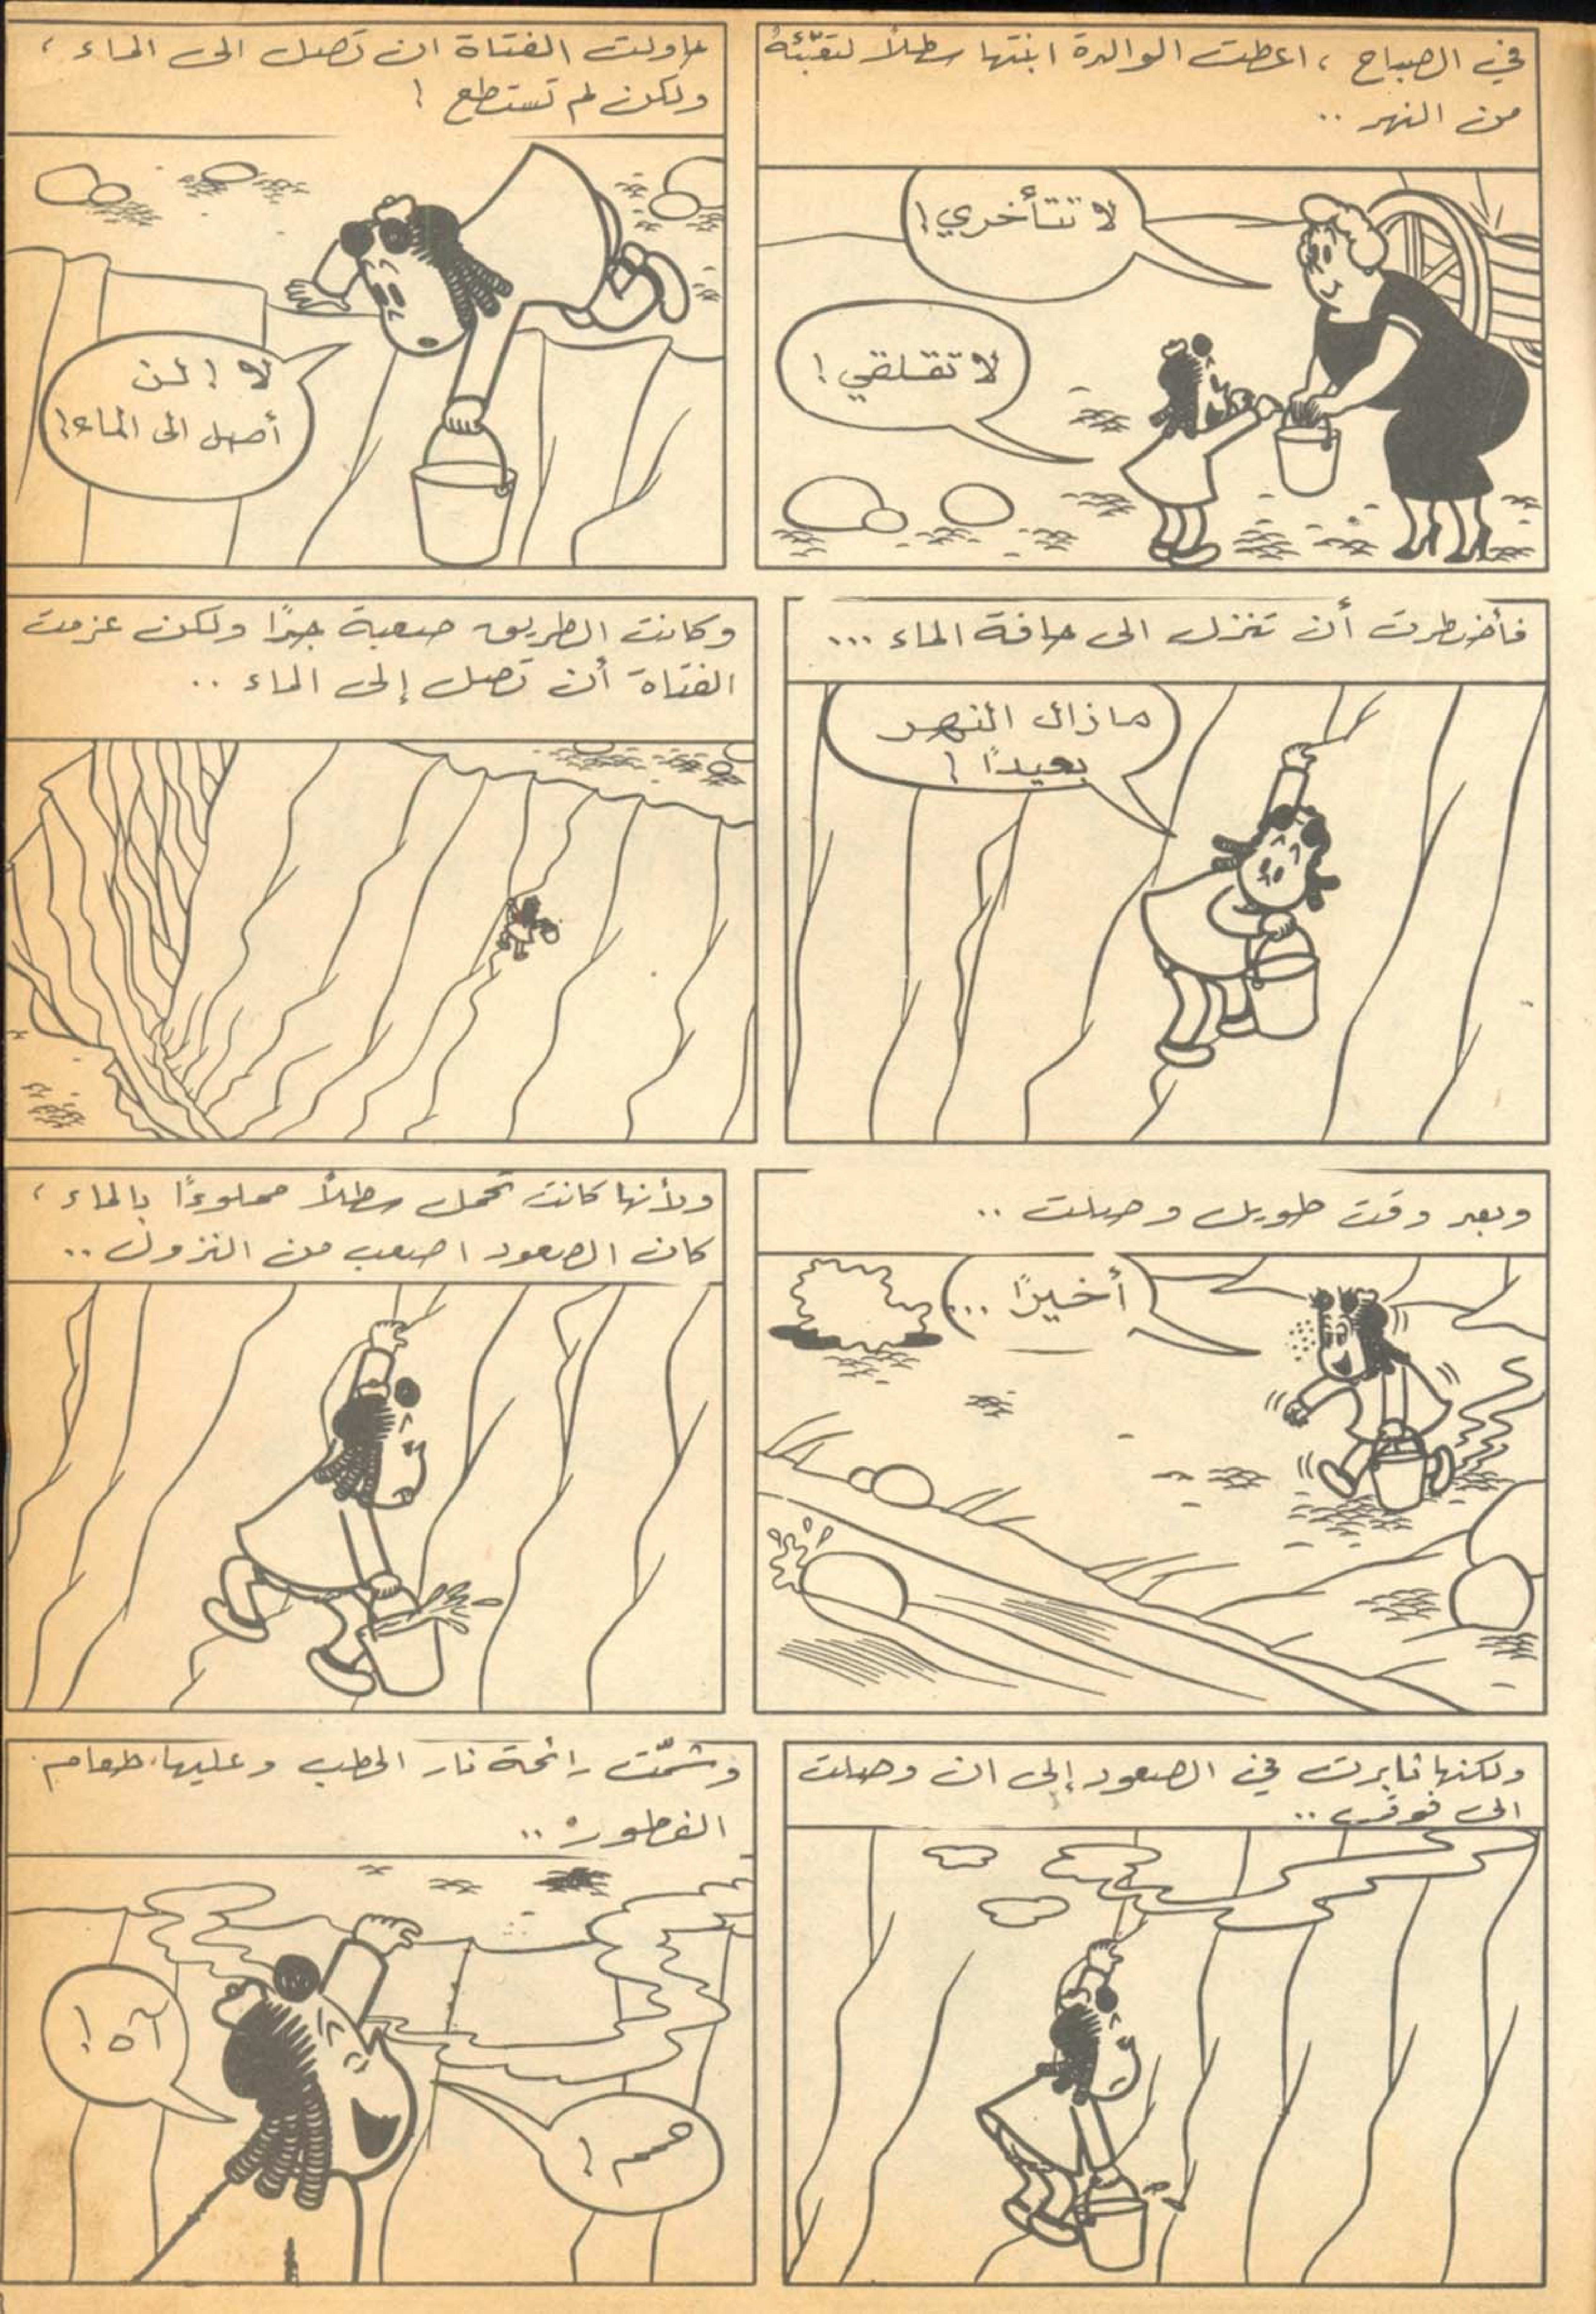 في الصباح ، اعطت الوالدة ابنتها سطلاً لتعبّئهُ
من النهر ..
لا تتأخري !
لا تقلقي !
حاولت الفتاة ان تصل الى الماء ،
ولكن لم تستطع !
لا ! لن
أصل الى الماء !
فأضطرت أن تنزل الى حافة الماء ...
ما زال النهر
بعيداً !
وكانت الطريق صعبة جداً ولكن عزمت
الفتاة أن تصل إلى الماء ..
وبعد وقت طويل وصلت ..
أخيراً ...
ولأنها كانت تحمل سطلاً مملوءاً بالماء ،
كان الصعود اصعب من النزول ..
ولكنها ثابرت في الصعود إلى ان وصلت
الى فوق ..
وشمّت رائحة نار الحطب وعليها طعام
الفطور ..
آه !
همم !